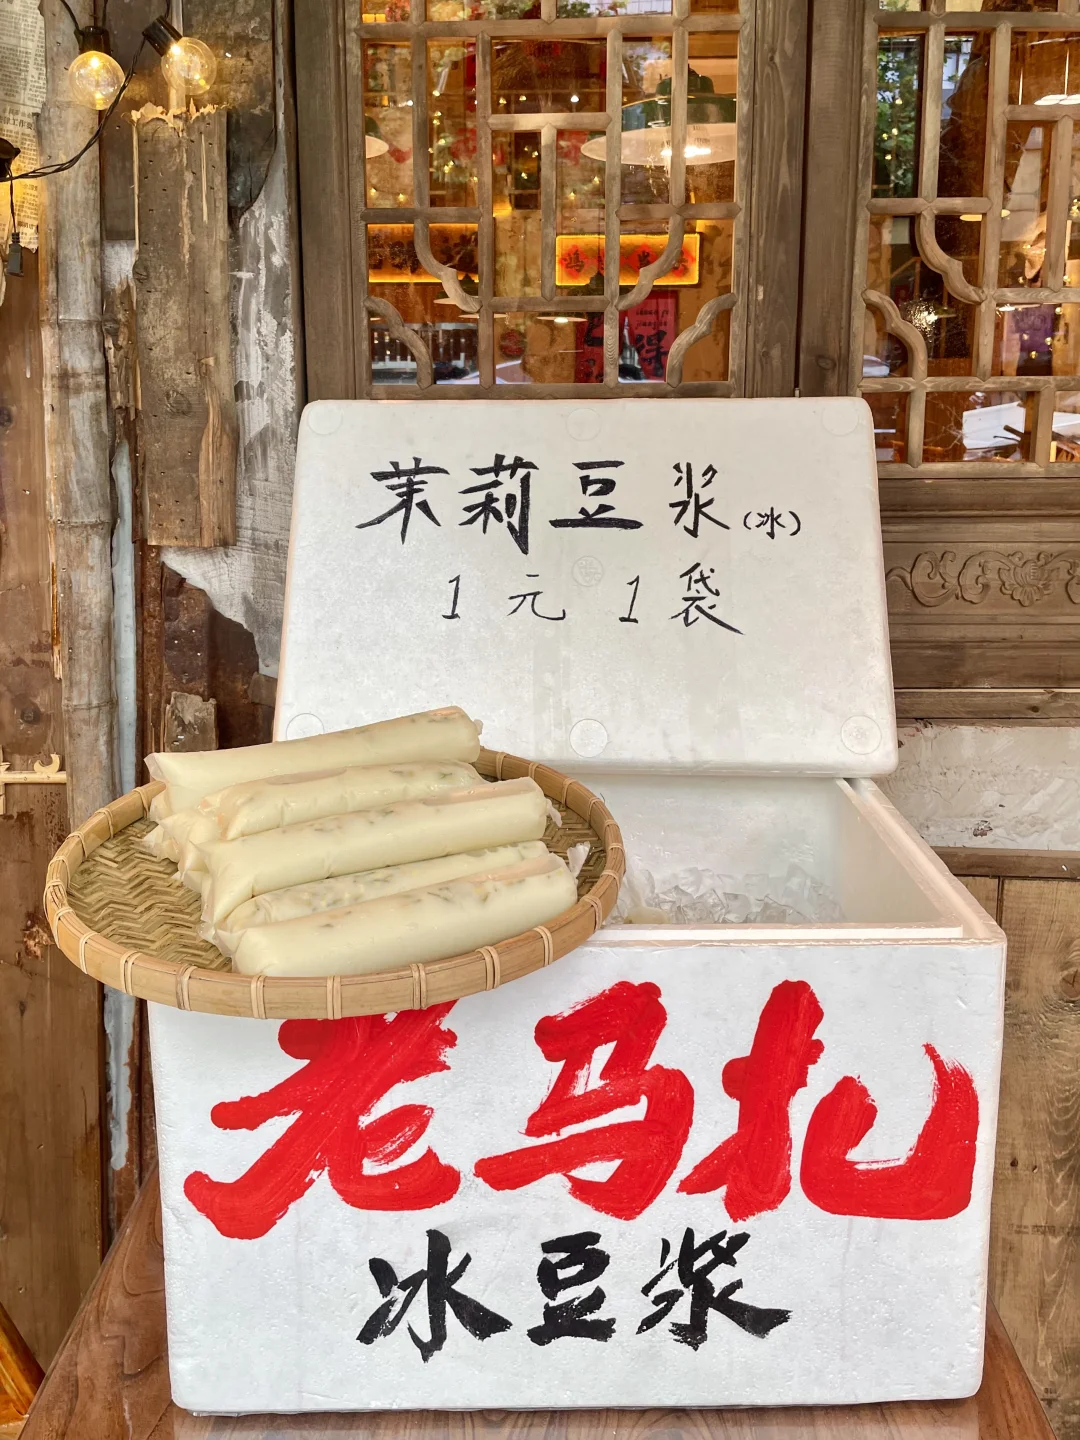 茉莉豆浆(冰)
1元1袋
老马扎
冰豆浆